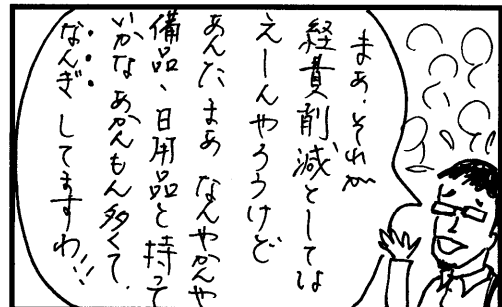 まぁ、それが
経費削減としては
えーんやろうけど
あんたまあ なんやかんや
備品、日用品と持って
いかなあかんもん多くて、
なんぎしてますわ!!